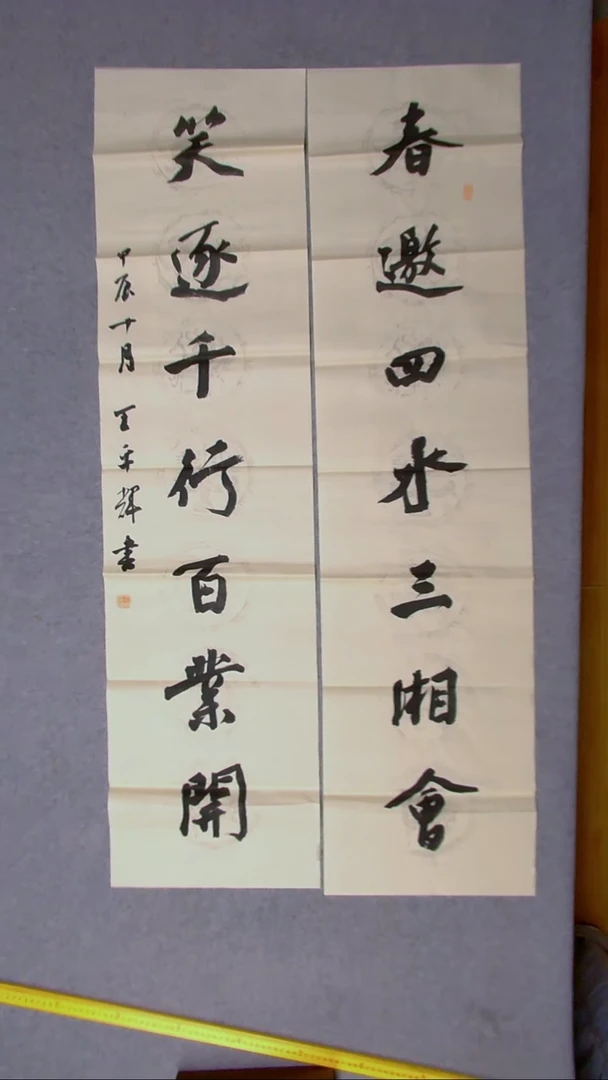 春邀四水三湘會
笑逐千行百業開
甲辰十月王平輝書